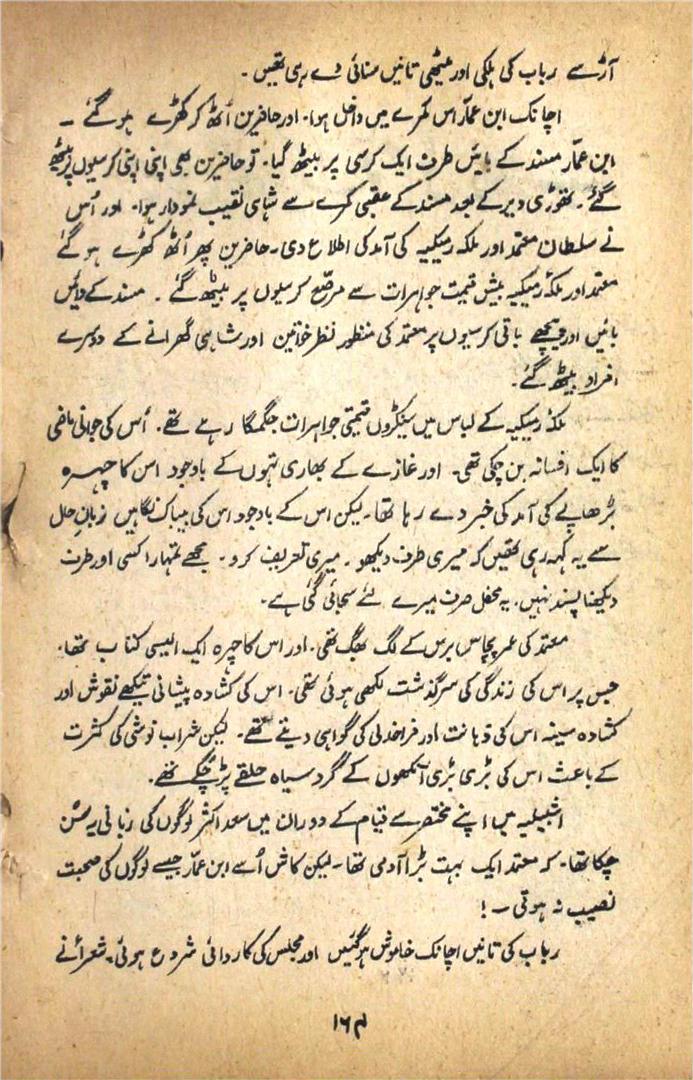 آڑ سے رباب کی ہلکی اور میٹھی تانیں سنائی دے رہی تھیں ۔
اچانک ابن عمّار اس کمرے میں داخل ہوا ۔ اور حاضرین اُٹھ کر کھڑے ہو گئے ۔
ابن عمّار مسند کے بائیں طرف ایک کرسی پر بیٹھ گیا ۔ تو حاضرین بھی اپنی اپنی کرسیوں پر بیٹھ
گئے ۔ تھوڑی دیر کے بعد مسند کے عقبی کمرے سے شاہی نقیب نمودار ہوا ۔ اور اُس
نے سلطان معتمد اور ملکہ رمیکیہ کی آمد کی اطلاع دی ۔ حاضرین پھر اُٹھ کھڑے ہو گئے
معتمد اور ملکہ رمیکیہ بیش قیمت جواہرات سے مرصّع کرسیوں پر بیٹھ گئے ۔ مسند کے دائیں
بائیں اور پیچھے باقی کرسیوں پر معتمد کی منظور نظر خواتین اور شاہی گھرانے کے دوسرے
افراد بیٹھ گئے ۔
ملکہ رمیکیہ کے لباس میں سینکڑوں قیمتی جواہرات جگمگا رہے تھے ۔ اُس کی جوانی ماضی
کا ایک افسانہ بن چکی تھی ۔ اور غازے کے بھاری تہوں کے باوجود اس کا چہرہ
بڑھاپے کی آمد کی خبر دے رہا تھا ۔ لیکن اس کے باوجود اس کی بیباک نگاہیں زبانِ حال
سے یہ کہہ رہی تھیں کہ میری طرف دیکھو ۔ میری تعریف کرو ۔ مجھے تمہارا کسی اور طرف
دیکھنا پسند نہیں ۔ یہ محفل صرف میرے لئے سجائی گئی ہے ۔
معتمد کی عمر پچاس برس کے لگ بھگ تھی ۔ اور اس کا چہرہ ایک ایسی کتاب تھا ۔
جس پر اس کی زندگی کی سرگذشت لکھی ہوئی تھی ۔ اس کی کشادہ پیشانی تیکھے نقوش اور
کشادہ سینہ اس کی ذہانت اور فراخدلی کی گواہی دیتے تھے ۔ لیکن شراب نوشی کی کثرت
کے باعث اس کی بڑی بڑی آنکھوں کے گرد سیاہ حلقے پڑ چکے تھے ۔
اشبیلیہ میں اپنے مختصر سے قیام کے دوران میں سعد اکثر لوگوں کی زبانی یہ سُن
چکا تھا ۔ کہ معتمد ایک بہت بڑا آدمی تھا ۔ لیکن کاش اُسے ابن عمّار جیسے لوگوں کی صحبت
نصیب نہ ہوتی ۔ !
رباب کی تانیں اچانک خاموش ہو گئیں اور مجلس کی کاروائی شروع ہوئی ۔ شعرائے
۱۶۴